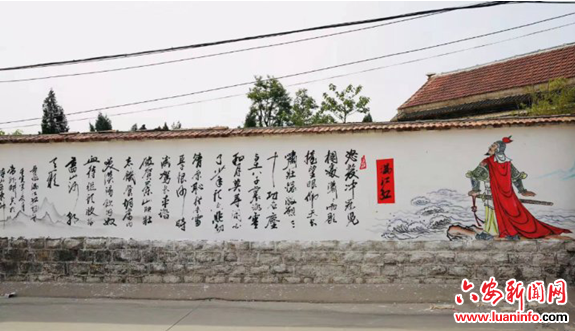 满江红
怒发冲冠凭
栏处潇潇雨歇
抬望眼仰天长
啸壮怀激烈三
十功名尘
土八千里路云
和月莫等闲白
了少年头空悲切
靖康耻犹未雪
臣子恨何时
灭驾长车踏破
贺兰山缺壮
志饥餐胡虏肉
笑谈渴饮匈奴
血待从头收拾
旧山河朝
天阙
六安新闻网
www.luaninfo.com